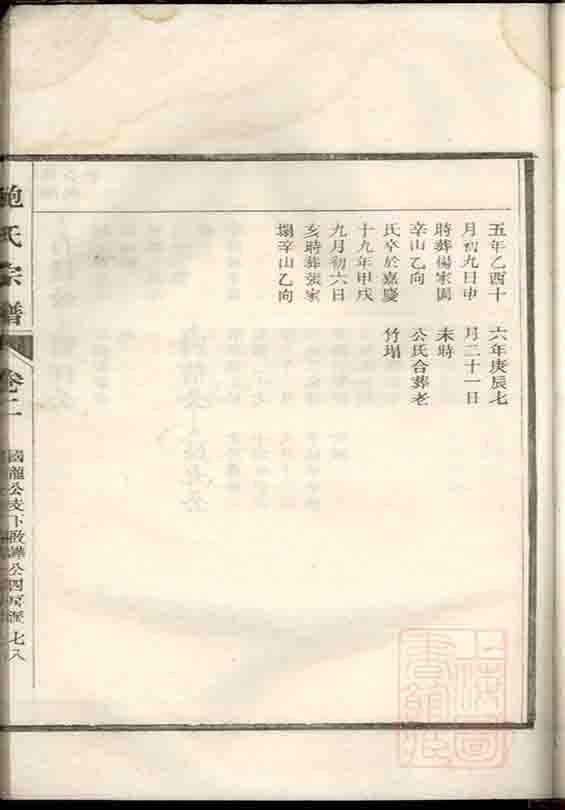 五年乙酉十
月初九日申
時葬楊家園
辛山乙向
氏卒於嘉慶
十九年甲戌
九月初六日
亥時葬張家
塌辛山乙向
六年庚辰七
月二十一日
未時
公氏合葬老
竹塌
鮑氏宗譜
卷二
國龍公支下啟鏵公四房派
七八
上海圖書館藏